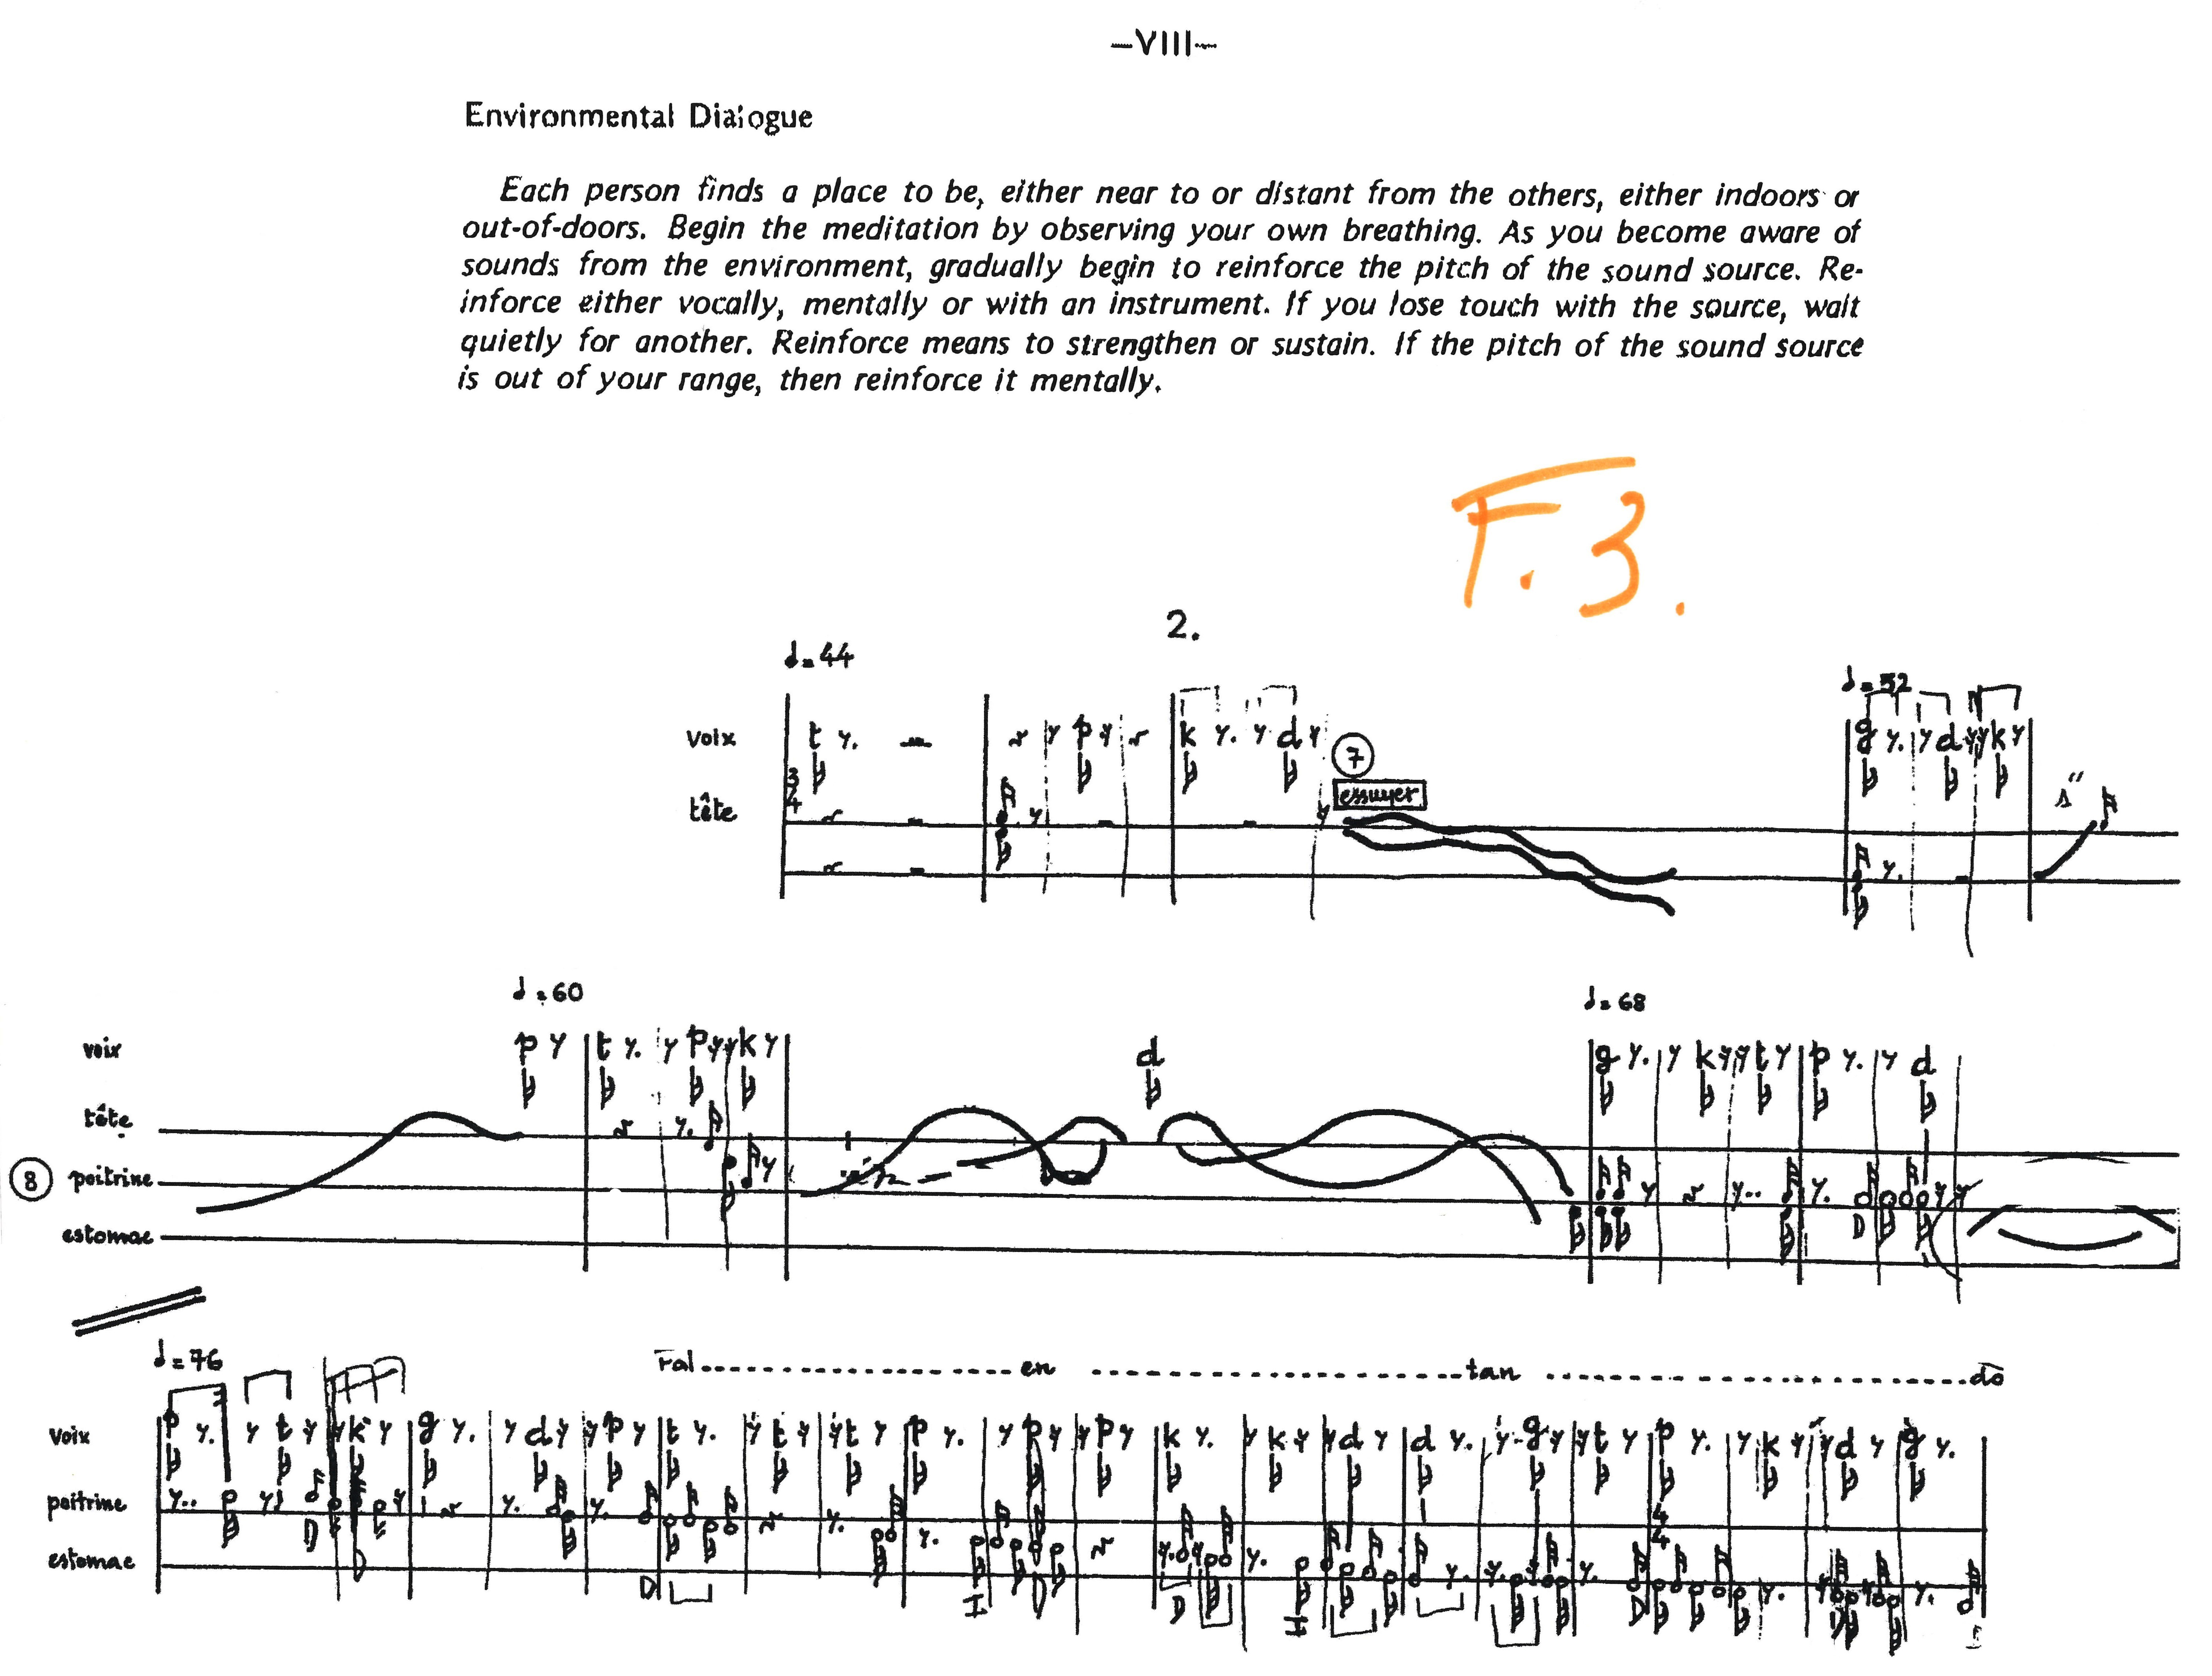 –VIII–
Environmental Dialogue
Each person finds a place to be, either near to or distant from the others, either indoors or
out-of-doors. Begin the meditation by observing your own breathing. As you become aware of
sounds from the environment, gradually begin to reinforce the pitch of the sound source. Re-
inforce either vocally, mentally or with an instrument. If you lose touch with the source, wait
quietly for another. Reinforce means to strengthen or sustain. If the pitch of the sound source
is out of your range, then reinforce it mentally.
F.3.
2.
♩=44
♩=52
voix t p k d g d k
7
essuyer
3/4
tête
♩=60
♩=68
voix p t p k d g k t p d
tête
8 poitrine
estomac
♩=76
Fal........en........tan........do
voix p t k g d p t t t p p p k k d d g t p k d g
poitrine
4/4
estomac
D I D D I D